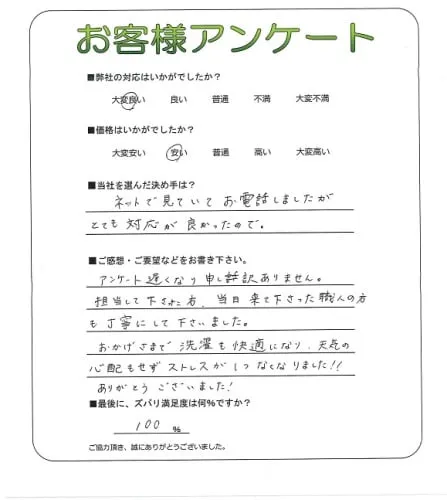 お客様アンケート
■弊社の対応はいかがでしたか?
大変良い 良い 普通 不満 大変不満
■価格はいかがでしたか?
大変安い 安い 普通 高い 大変高い
■当社を選んだ決め手は?
ネットで見ていてお電話しましたが
とても対応が良かったので。
■ご感想・ご要望などをお書き下さい。
アンケート遅くなり申し訳訳ありません。
担当して下された方、当日来て下さった職人の方
も丁寧にして下さいました。
おかげさまで洗濯も快適になり、天気の
心配もせずストレスが1つなくなりました!!
ありがとうございました!
■最後に、ズバリ満足度は何%ですか?
100 %
ご協力頂き、誠にありがとうございました。